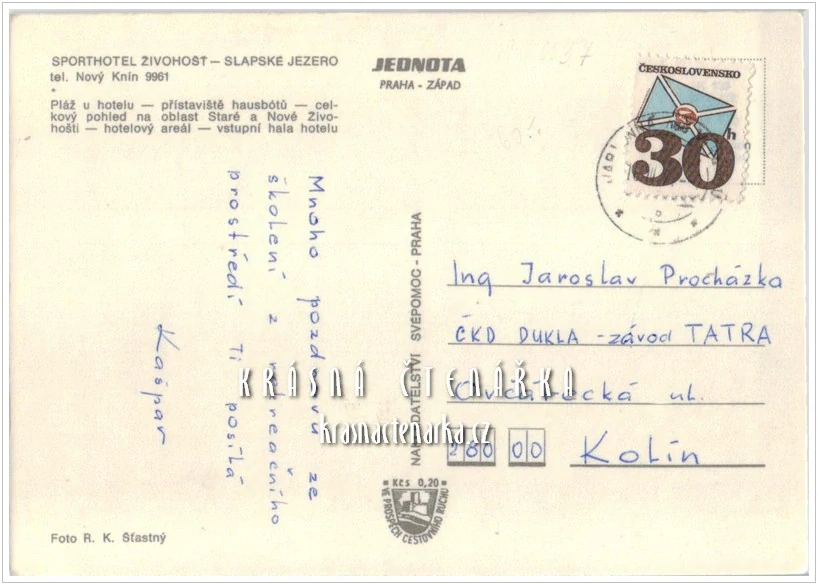 SPORTHOTEL ŽIVOHOŠŤ – SLAPSKÉ JEZERO
tel. Nový Knín 9961
Pláž u hotelu — přístaviště hausbótů — cel-
kový pohled na oblast Staré a Nové Živo-
hošti — hotelový areál — vstupní hala hotelu
JEDNOTA
PRAHA - ZÁPAD
1157
ČESKOSLOVENSKO
30 h
Mnoho pozdravů ze
školení z rekreačního
prostředí Ti posílá
Kašpar
NAKLADATELSTVÍ SVÉPOMOC - PRAHA
Ing Jaroslav Procházka
ČKD DUKLA - závod TATRA
Ovčárecká ul.
280 00 Kolín
KRÁSNÁ ČTENÁŘKA
krasnactenarka.cz
Kčs 0,20
VE PROSPĚCH CESTOVNÍHO RUCHU
Foto R. K. Šťastný